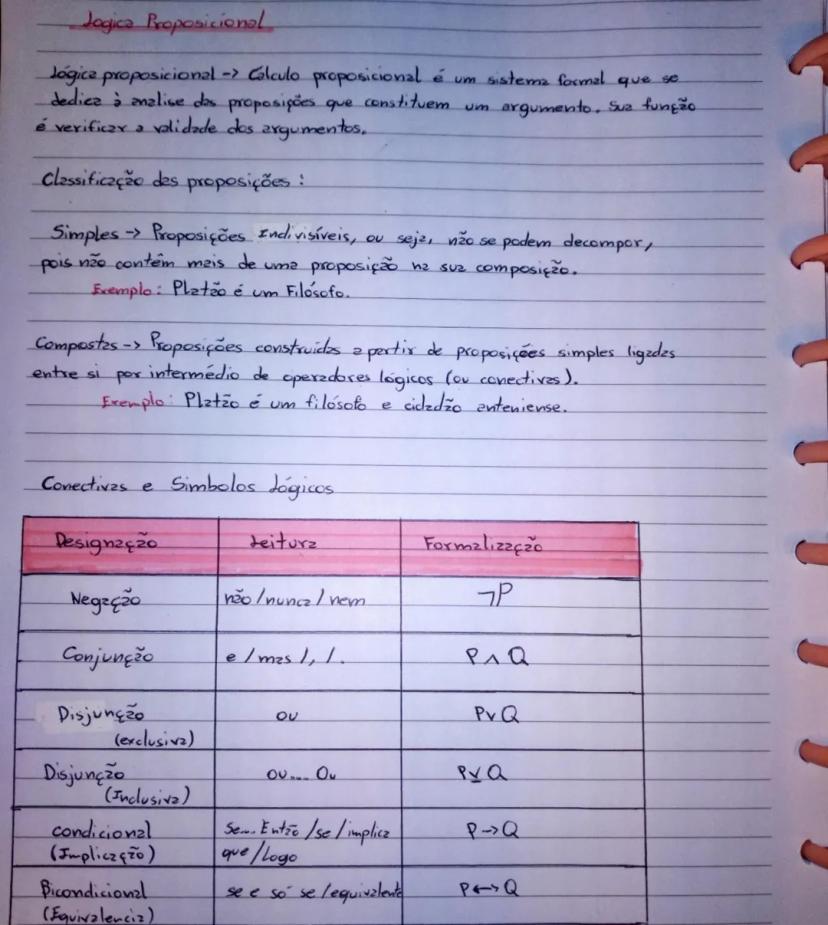 Logica Proposicional
Lógica proposicional -> Cálculo proposicional é um sistema formal que se
dedica à analise das proposições que constituem um argumento. Sua função
é verificar a validade dos argumentos.
Classificação das proposições:
Simples -> Proposições Indivisíveis, ou seja, não se podem decompor,
pois não contêm mais de uma proposição na sua composição.
Exemplo: Platão é um Filósofo.
Compostas -> Proposições construidas a partir de proposições simples ligadas
entre si por intermédio de operadores lógicos (ou conectivas).
Exemplo: Platão é um filósofo e cidadão anteniense.
Conectivas e Simbolos Lógicos
Designação Leitura Formalização
Negação não/nunca/nem ¬P
Conjunção e/mas/,/. P∧Q
Disjunção ou P∨Q
(exclusiva)
Disjunção ou... Ou P⊻Q
(Inclusiva)
condicional Se... Então/se/implica P->Q
(Implicação) que/Logo
Bicondicional se e só se/equivalente P<->Q
(Equivalencia)